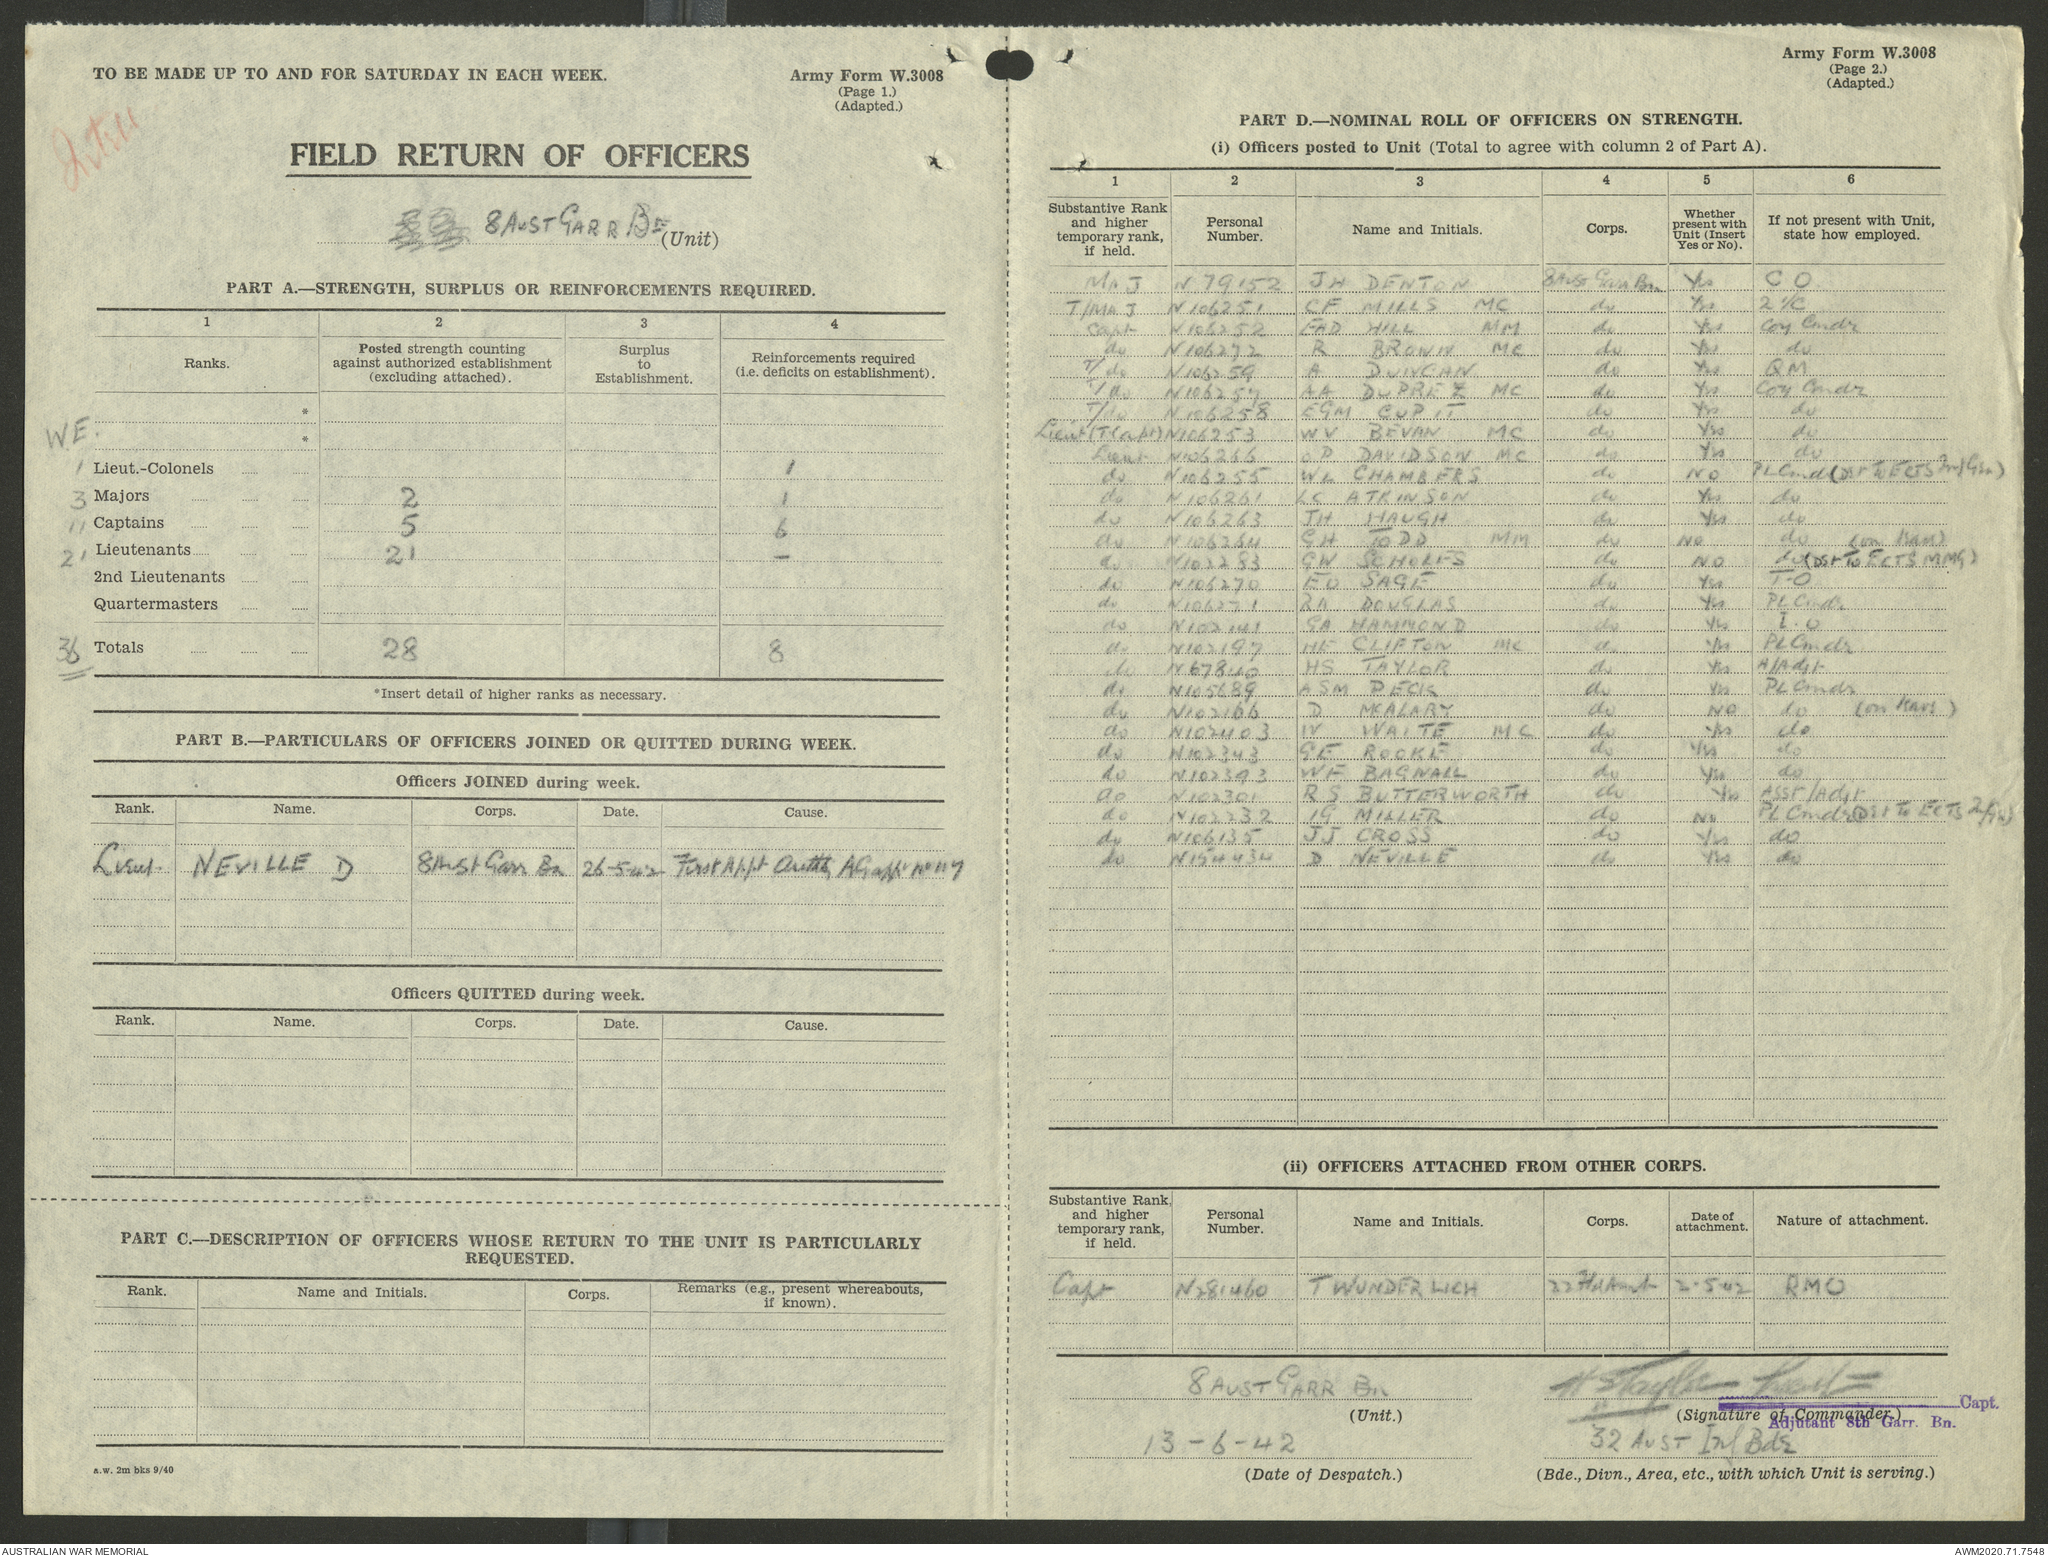 TO BE MADE UP TO AND FOR SATURDAY IN EACH WEEK.
Army Form W.3008
(Page 1.)
(Adapted.)
FIELD RETURN OF OFFICERS
8 AUST GARR Bn (Unit)
PART A.—STRENGTH, SURPLUS OR REINFORCEMENTS REQUIRED.
1 2 3 4
Ranks. Posted strength counting against authorized establishment (excluding attached). Surplus to Establishment. Reinforcements required (i.e. deficits on establishment).
*
W.E. *
1 Lieut.-Colonels 1
3 Majors 2 1
11 Captains 5 6
21 Lieutenants 21 —
2nd Lieutenants
Quartermasters
36 Totals 28 8
*Insert detail of higher ranks as necessary.
PART B.—PARTICULARS OF OFFICERS JOINED OR QUITTED DURING WEEK.
Officers JOINED during week.
Rank. Name. Corps. Date. Cause.
Lieut. NEVILLE D 8 Aust Garr Bn 26-5-42 First Appt
Officers QUITTED during week.
Rank. Name. Corps. Date. Cause.
PART C.—DESCRIPTION OF OFFICERS WHOSE RETURN TO THE UNIT IS PARTICULARLY
REQUESTED.
Rank. Name and Initials. Corps. Remarks (e.g., present whereabouts, if known).
a.w. 2m bks 9/40
Army Form W.3008
(Page 2.)
(Adapted.)
PART D.—NOMINAL ROLL OF OFFICERS ON STRENGTH.
(i) Officers posted to Unit (Total to agree with column 2 of Part A).
1 2 3 4 5 6
Substantive Rank and higher temporary rank, if held. Personal Number. Name and Initials. Corps. Whether present with Unit (Insert Yes or No). If not present with Unit, state how employed.
Maj N 79152 JH DENTON 8 Aust Garr Bn Yes C O
T/Maj N106251 CF MILLS MC do Yes 2 I/C
Capt N106252 EAD HILL MM do Yes Coy Cmdr
do N106272 R BROWN MC do Yes do
T/do N106259 A DUNCAN do Yes QM
T/do N106257 AA DUPREZ MC do Yes Coy Cmdr
T/do N106258 EGM CUPIT do Yes do
Lieut (T/Capt) N106253 WV BEVAN MC do Yes do
Lieut N106266 OP DAVIDSON MC do Yes do
do N106255 WL CHAMBERS do NO PL Cmdr
do N106261 LC ATKINSON do Yes do
do N106263 JH HAUGH do Yes do
do N106264 CH TODD MM do NO do
do N102283 GW SCHOLES do NO do (Det To ECTS MMG)
do N106270 EO SAGE do Yes T.O
do N106271 RA DOUGLAS do Yes PL Cmdr
do N102141 GA HAMMOND do Yes I.O
do N102197 HE CLIFTON MC do Yes PL Cmdr
do N67840 HS TAYLOR do Yes A/Adjt
do N105689 ASM DECK do Yes PL Cmdr
do N102166 D McALARY do NO do
do N102403 W WAITE MC do Yes do
do N102343 GE ROOKE do Yes do
do N102393 WF BAGNALL do Yes do
do N102301 RS BUTTERWORTH do Yes Asst/Adjt
do N102232 IG MILLER do No PL Cmdr
do N106135 JJ CROSS do Yes do
do N154434 D NEVILLE do Yes do
(ii) OFFICERS ATTACHED FROM OTHER CORPS.
Substantive Rank, and higher temporary rank, if held. Personal Number. Name and Initials. Corps. Date of attachment. Nature of attachment.
Capt N281460 T WUNDERLICH 22 2-5-42 RMO
8 AUST GARR Bn
(Unit.)
HS Taylor Lieut
Capt.
(Signature of Commander.)
Adjutant 8th Garr. Bn.
13-6-42
(Date of Despatch.)
32 AUST Inf Bde
(Bde., Divn., Area, etc., with which Unit is serving.)
AUSTRALIAN WAR MEMORIAL
AWM2020.71.7548